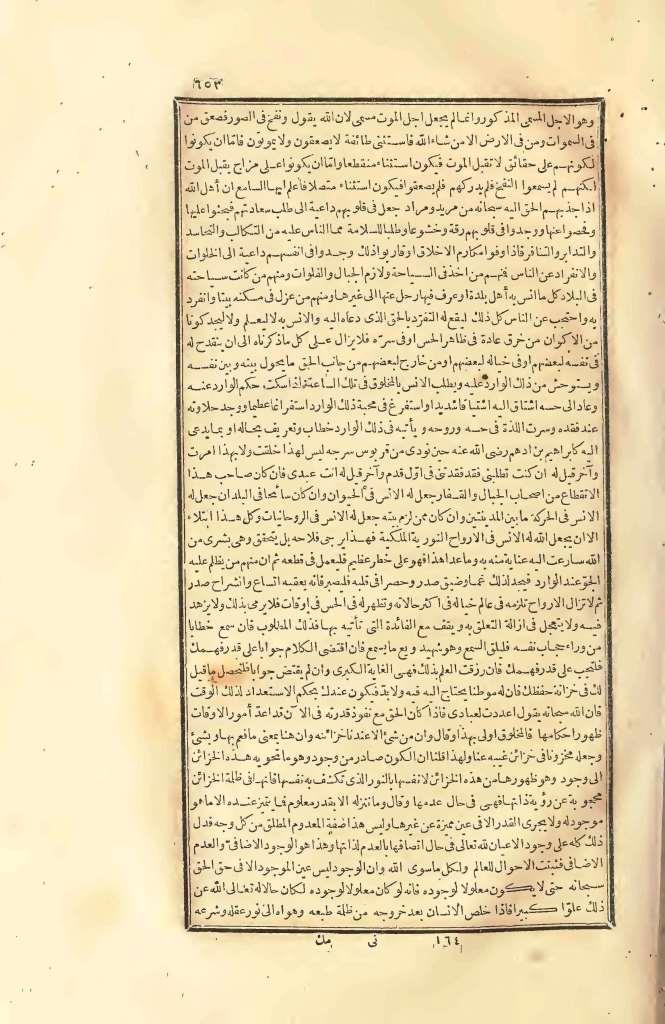 ٦٥٣
وهو الاجل المسمى المذكور وانما لم يجعل اجل الموت مسمى لان الله يقول ونفخ فى الصور فصعق من
فى السموات ومن فى الارض الا من شاء الله فاستثنى طائفة لا يصعقون ولا يموتون فاما ان يكونوا
لكونهم على حقائق لا تقبل الموت فيكون استثناء منقطعا واما ان يكونوا على مزاج يقبل الموت
لكنهم لم يسمعوا النفخ فلم يدركهم فلم يصعقوا فيكون استثناء متصلا فاعلم ايها السامع ان أهل الله
اذا جذبهم الحق اليه سبحانه من مريد ومراد جعل فى قلوبهم داعية الى طلب سعادتهم فبحثوا عليها
وفحصوا عنها ووجدوا فى قلوبهم رقة وخشوعا وطلبا للسلامة مما الناس عليه من التكالب والتحاسد
والتدابر والتنافر فاذا وفوا مكارم الاخلاق او قاربوا ذلك وجدوا فى انفسهم داعية الى الخلوات
والانفراد عن الناس فمنهم من اخذ فى السياحة ولازم الجبال والفلوات ومنهم من كانت سياحته
فى البلاد كل ما انس به أهل بلدة او عرف فيها رحل عنها الى غيرها ومنهم من عزل فى مسكنه بيتا وانفرد
به واحتجب عن الناس كل ذلك ليقع له التفرد بالحق الذى دعاه اليه والانس به لا ليعلم ولا ليجد كونا
من الاكوان من خرق عادة فى ظاهر الحس او فى سره فلا يزال على كل ما ذكرناه الى ان ينقدح له
فى نفسه لبعضهم او فى خياله لبعضهم او من خارج لبعضهم من جانب الحق ما يحول بينه وبين نفسه
ويستوحش من ذلك الوارد عليه ويطلب الانس بالمخلوق فى تلك الساعة فاذا سكت حكم الوارد عنه
وعاد الى حسه اشتاق اليه اشتياقا شديدا واستفرغ فى محبة ذلك الوارد استفراغا عظيما ووجد حلاوته
عند فقده وسرت اللذة فى حسه وروحه ويأتيه فى ذلك الوارد خطاب وتعريف بحاله او بما يدعى
اليه كابراهيم بن ادهم رضى الله عنه حين نودى من قربوس سرجه ليس لهذا خلقت ولا بهذا امرت
وآخر قيل له ان كنت تطلبنى فقد فقدتنى فى اول قدم وآخر قيل له انت عبدى فان كان صاحب هذا
الانقطاع من اصحاب الجبال والقفار جعل له الانس فى الحيوان وان كان سائحا فى البلدان جعل له
الانس فى الحركة ما بين المدينتين وان كان ممن لزم بيته جعل له الانس فى الروحانيات وكل هذا ابتلاء
الا ان يجعل الله له الانس فى الارواح النورية الملكية فهذا يرجى فلاحه بل يتحقق وهى بشرى من
الله سارعت اليه عناية منه به وما عدا هذا فهو على خطر عظيم فليعمل فى قطعه ثم ان منهم من يظلم عليه
الجو عند الوارد فيجد لذلك غما وضيق صدر وحصرا فى قلبه فليصبر فانه يعقبه اتساع وانشراح صدر
ثم لا تزال الارواح تلزمه فى عالم خياله فى اكثر حالاته وتظهر له فى الحس فى اوقات فلا يرمى بذلك ولا يزهد
فيه ولا يتعجل فى ازالة التعلق به ويقف مع الفائدة التى تأتيه بها فذلك المطلوب فان سمع خطابا
من وراء حجاب نفسه فليلق السمع وهو شهيد ويع ما يسمع فان اقتضى الكلام جوابا على قدر فهمك
فلتجب على قدر فهمك فان رزقت العلم بذلك فهى الغاية الكبرى وان لم يقتض جوابا فلتحصل ما قيل
لك فى خزانة حفظك فان له موطنا يحتاج اليه فيه ولا بد فيكون عندك بحكم الاستعداد لذلك الوقت
فان الله سبحانه يقول اعددت لعبادى فاذا كان الحق مع نفوذ قدرته فى الآن قد اعد أمور الاوقات
ظهورا حكامها فالمخلوق اولى بهذا وقال وان من شئ الا عندنا خزائنه وان هنا بمعنى ما فعم بها وبشئ
وجعله مخزونا فى خزائن غيبه عنا ولهذا قلنا ان الكون صادر من وجود وهو ما تحويه هذه الخزائن
الى وجود وهو ظهورها من هذه الخزائن لانفسها بالنور الذى تكشف به نفسها فانها فى ظلمة الخزائن
محجوبة عن رؤية ذاتها فهى فى حال عدمها وقال وما ننزله الا بقدر معلوم فما يتميز عنده الا ما هو
موجود له ولا يجرى القدر الا فى عين مميزة عن غيرها وليس هذا صفة المعدوم المطلق من كل وجه فدل
ذلك كله على وجود الاعيان لله تعالى فى حال اتصافها بالعدم لذاتها وهذا هو الوجود الاضافى والعدم
الاضافى فثبتت الاحوال للعالم ولكل ما سوى الله وان الوجود ليس عين الموجود الا فى حق الحق
سبحانه حتى لا يكون معلولا لوجوده فانه لو كان معلولا لوجوده لكان حالا له تعالى الله عن
ذلك علوا كبيرا فاذا خلص الانسان بعد خروجه من ظلمة طبعه وهواه الى نور عقله وشرعه
١٦٤ نى مك